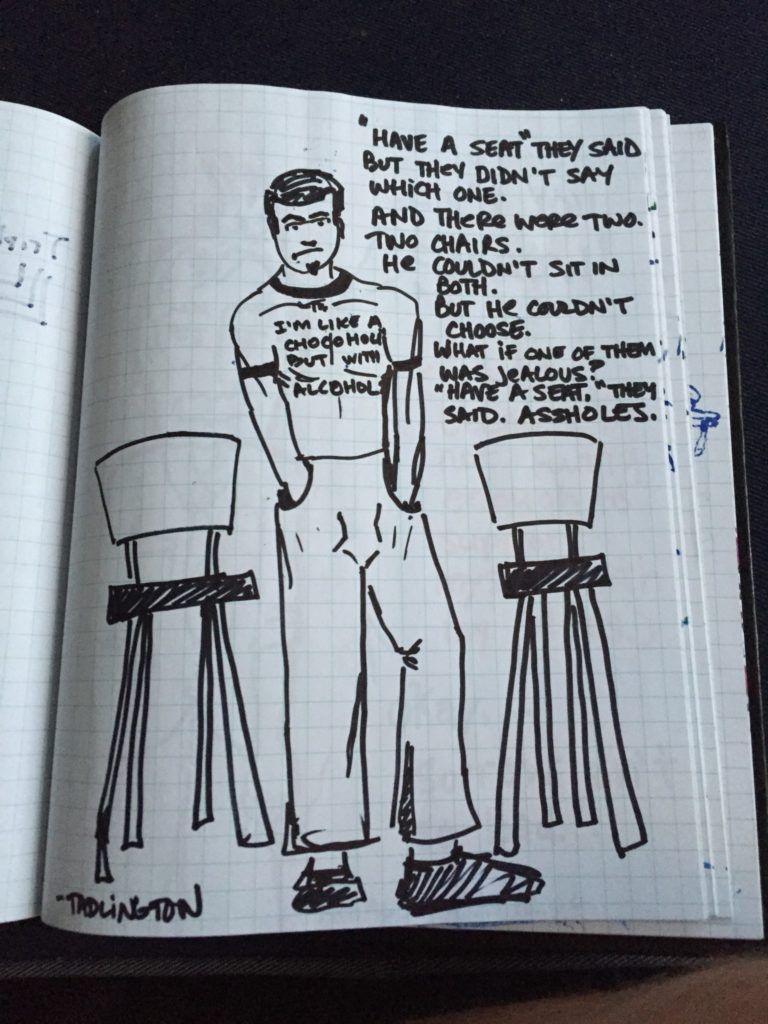 "HAVE A SEAT" THEY SAID
BUT THEY DIDN'T SAY
WHICH ONE.
AND THERE WERE TWO.
TWO CHAIRS.
HE COULDN'T SIT IN
BOTH.
BUT HE COULDN'T
CHOOSE.
WHAT IF ONE OF THEM
WAS JEALOUS?
"HAVE A SEAT," THEY
SAID. ASSHOLES.
I'M LIKE A
CHOCOHOLI
BUT WITH
ALCOHOL
"TADLINGTON